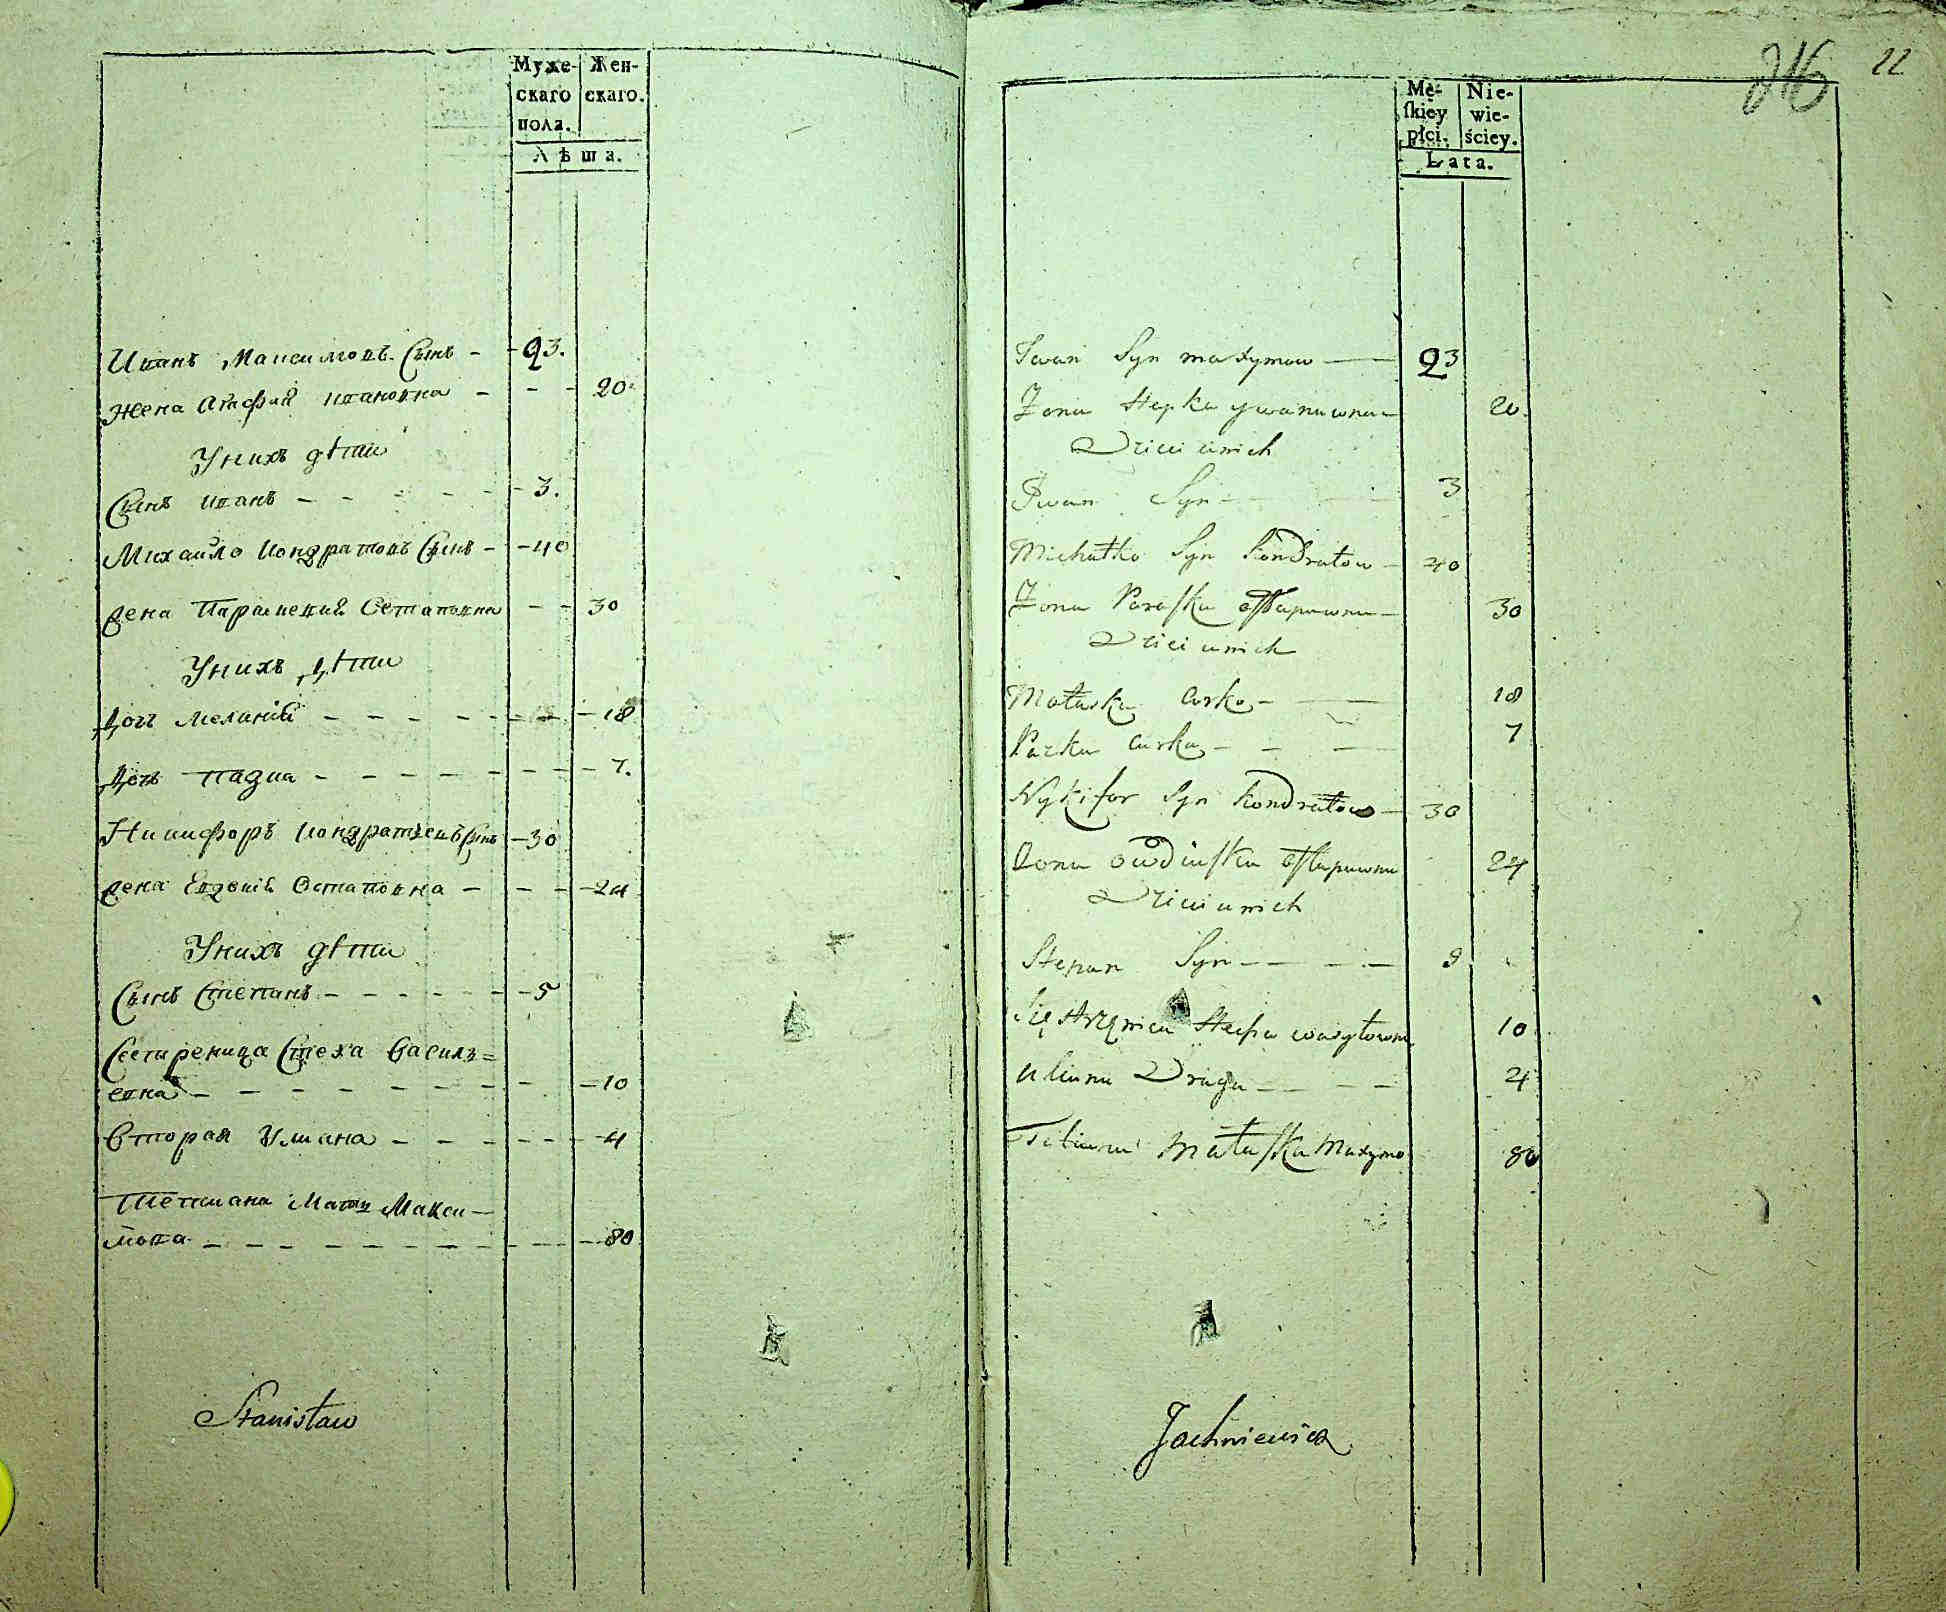 Муже-
скаго
пола.
Жен-
скаго.
Лѣта.
Иванъ Максимовъ Сынъ - - 23.
Жена Агафия ивановна - - - 20.
Унихъ дѣти
Сынъ иванъ - - - - - 3.
Михайло кондратовъ Сынъ - - 40
жена Парасковия Остаповна - - 30
Унихъ дѣти
Дочь Мелания - - - - - - - 18
Дочь пазка - - - - - - - - 7.
Никифоръ кондратьевъ Сынъ - 30
жена Евдокия Остаповна - - - - 24
Унихъ дѣти
Сынъ Степанъ - - - - - - 5
Сестреница Стеха Василь=
евна - - - - - - - - - 10
Вторая Улиана - - - - - - 4
Татиана Мать Макси-
мова - - - - - - - - - - 80
Stanisław
216 22
Mę-
skiey
płci.
Nie-
wie-
ściey.
Lata.
Iwan Syn maxymow — 23
Zona Stepka ywanuwna — 20.
Dzieci unich
Iwan Syn - - 3
Michałko Syn kondratow - 40
Zona Paraska Ostapuwna - 30
Dzieci unich
Małaska curka - — 18
Pazka curka - - — 7
Nykifor Syn kondratow - 30
Zona owdiuska Ostapuwna 24
Dzieci unich
Stepan Syn — - - 9
Sięstrzęnica Stecha wasylowna 10
Uliana Druga — - - 4
Tatiana matuska Maxymo 80
Jachniewicz